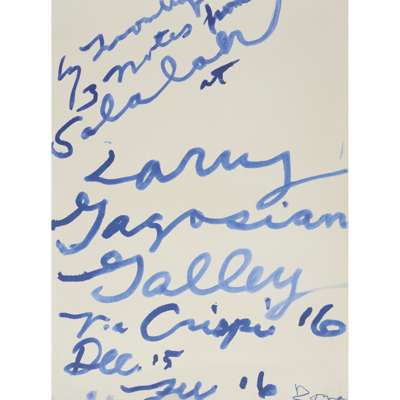 Cy Twombly
3 Notes from
Salalah at
Larry
Gagosian
Galley
Via Crispi '16
Dec. 15
'16